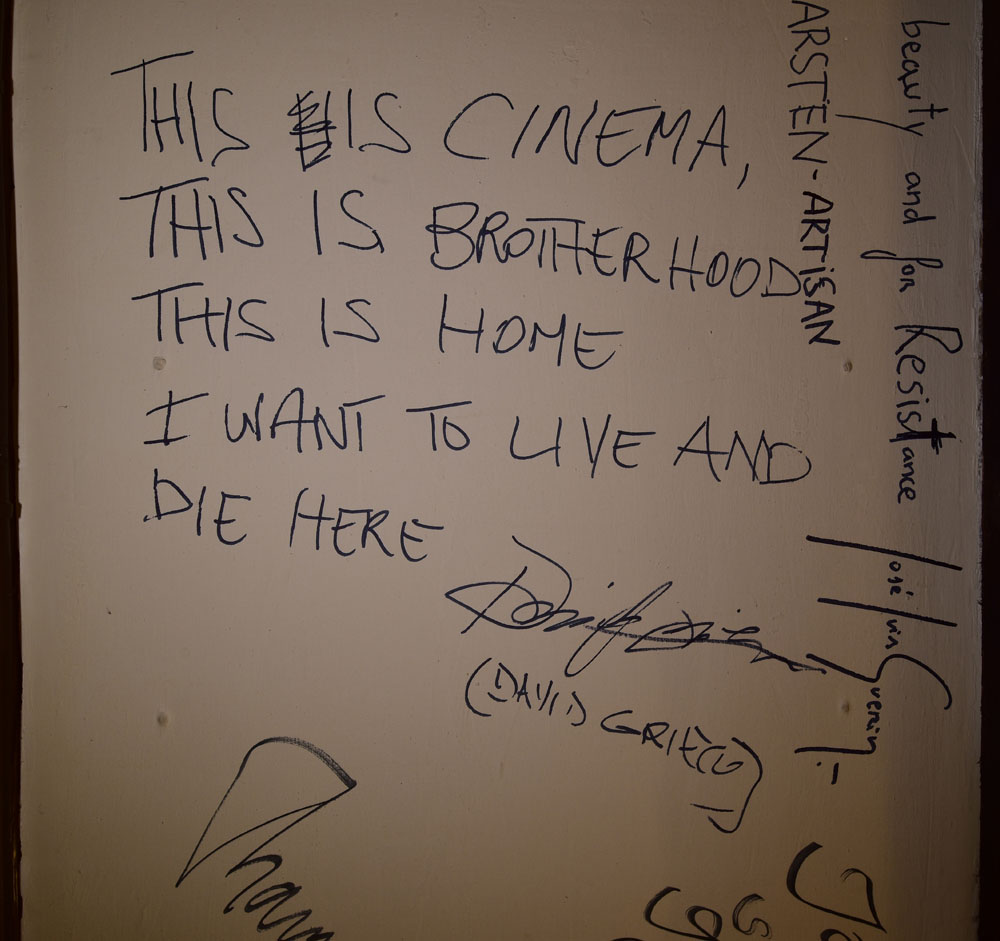 THIS IS CINEMA,
THIS IS BROTHERHOOD
THIS IS HOME
I WANT TO LIVE AND
DIE HERE
(DAVID GRIECO)
ARSTEN-ARTISAN
beauty and for Resistance
José Luis Guerin